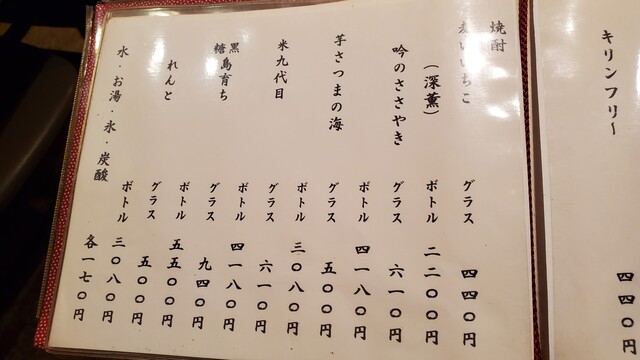 キリンフリー 四四〇円
焼酎
麦いいちこ グラス 四四〇円
(深薫) ボトル 二二〇〇円
吟のささやき グラス 六一〇円
ボトル 四一八〇円
芋さつまの海 グラス 五〇〇円
ボトル 三〇八〇円
米九代目 グラス 六一〇円
ボトル 四一八〇円
黒糖島育ち グラス 九四〇円
ボトル 五五〇〇円
れんと グラス 五〇〇円
ボトル 三〇八〇円
水・お湯・氷・炭酸 各一七〇円